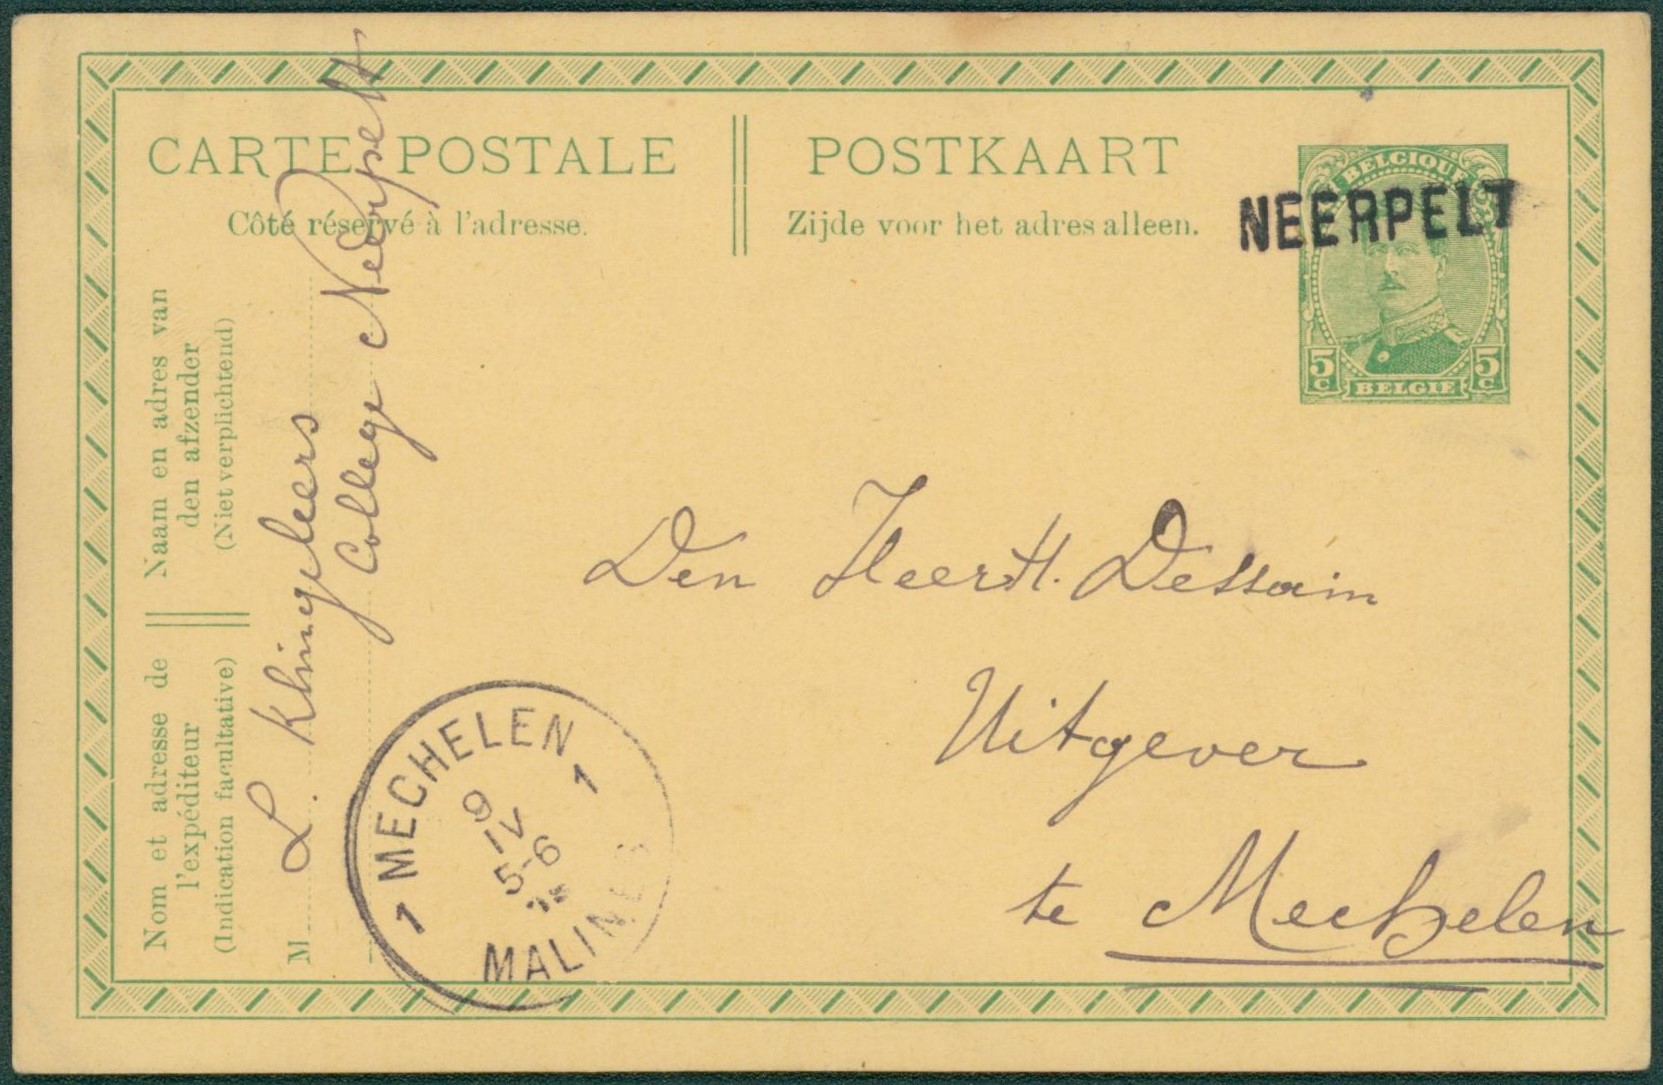 CARTE POSTALE
Côté réservé à l'adresse.
POSTKAART
Zijde voor het adres alleen.
BELGIQUE
5 C 5 C
BELGIE
NEERPELT
Naam en adres van
den afzender
(Niet verplichtend)
Nom et adresse de
l'expéditeur
(Indication facultative)
M
L. Klingeleers
College Neerpelt
Den Heer H. Dessain
Uitgever
te Mechelen
1 MECHELEN 1
9
IV
5-6
MALINES